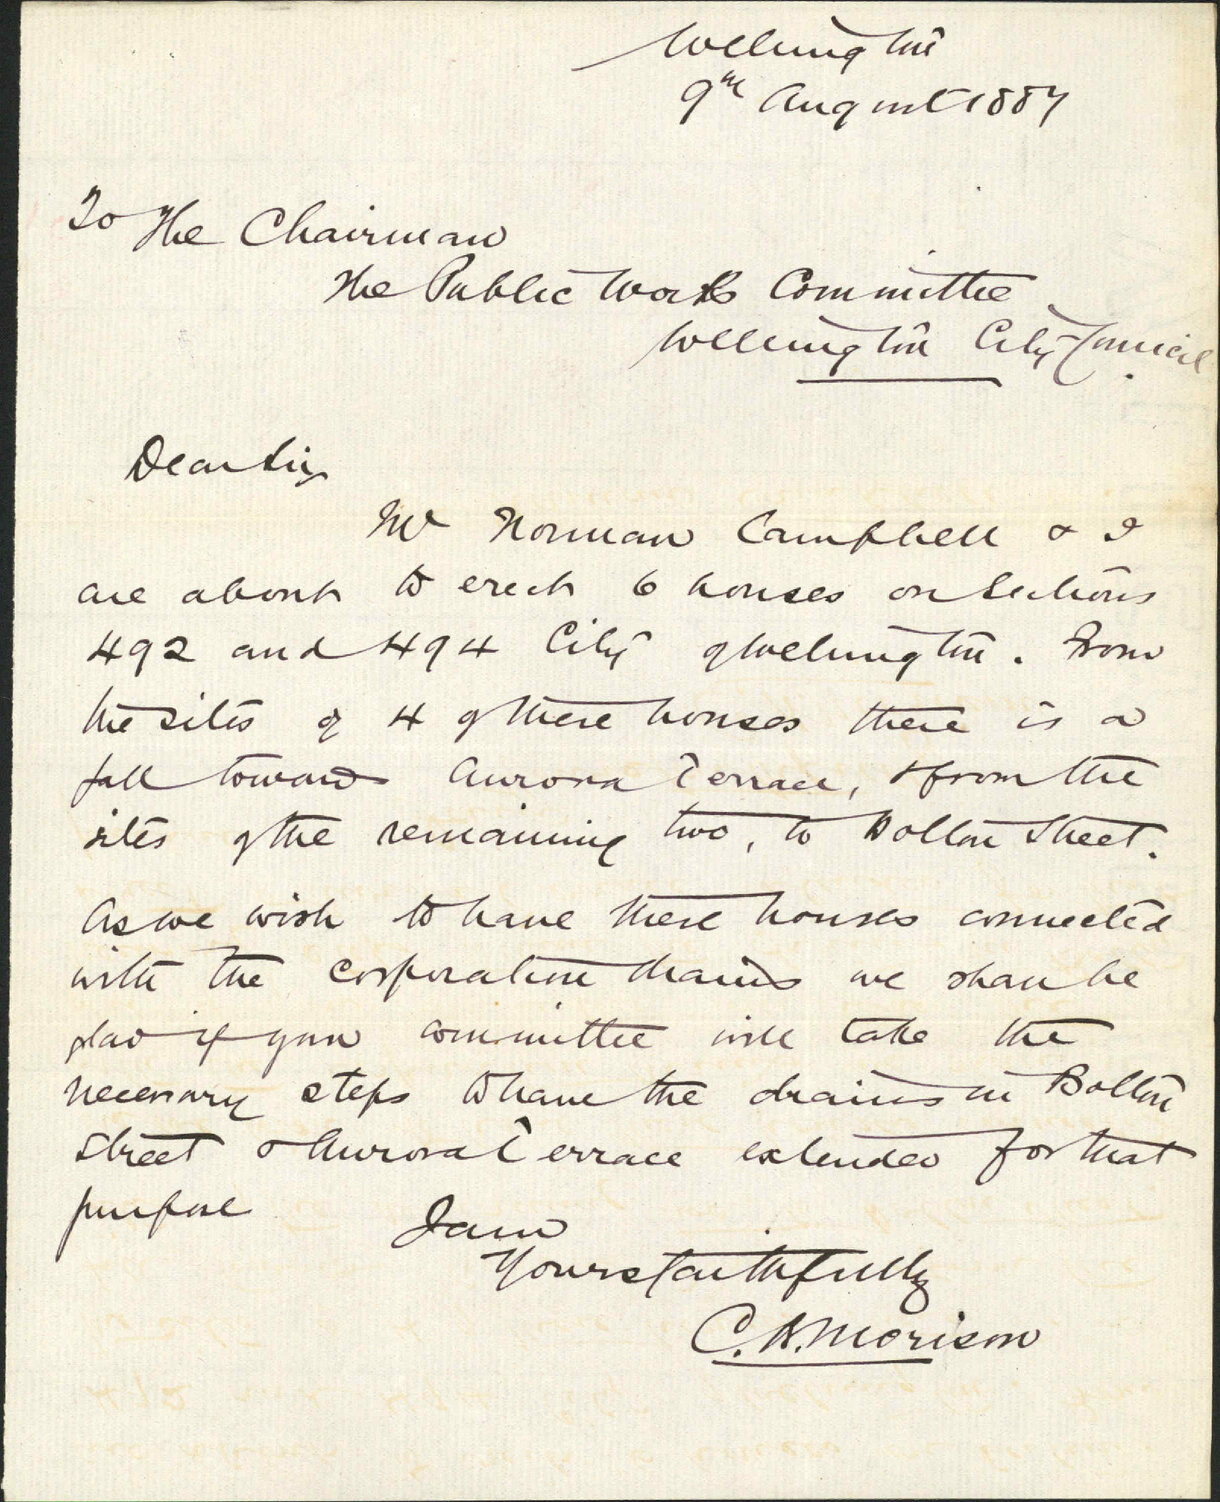 Wellington
9th August 1887
To The Chairman
The Public Works Committee
Wellington City Council
Dear Sir,
Mr Norman Campbell & I
are about to erect 6 houses on Sections
492 and 494 City of Wellington. From
the sites of 4 of these houses there is a
fall toward Aurora Terrace, & from the
sites of the remaining two, to Bolton Street.
As we wish to have these houses connected
with the corporation drains we shall be
glad if your committee will take the
necessary steps to have the drains in Bolton
Street & Aurora Terrace extended for that
purpose
I am
Yours faithfully
C. B. Morison